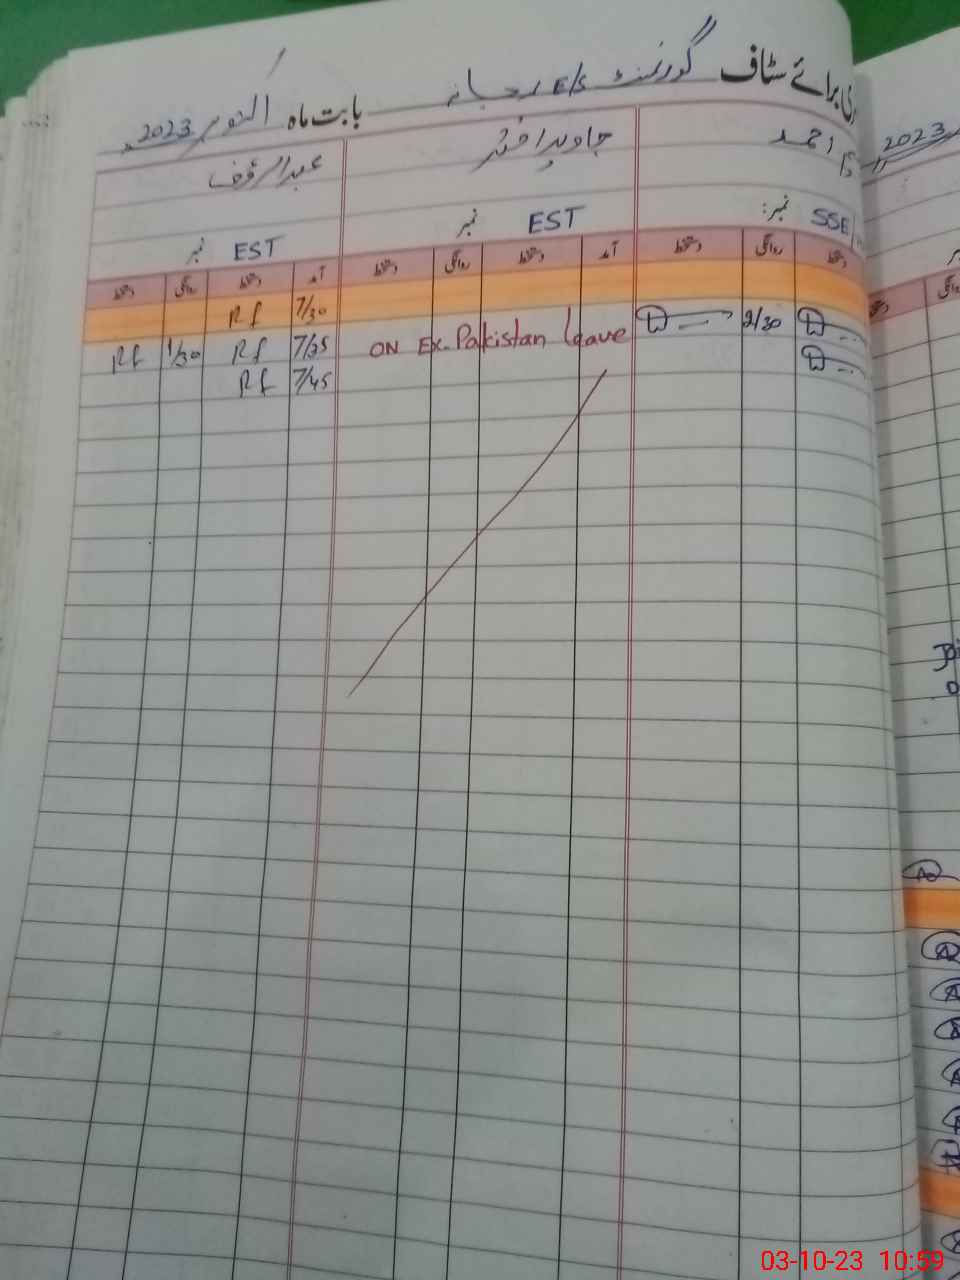 برائے سٹاف گورنمنٹ E/S رجانہ بابت ماہ اکتوبر 2023
2023
احمد
جاوید اختر
عبدالرؤف
SSE نمبر:
EST نمبر
EST نمبر
دستخط روانگی دستخط آمد دستخط روانگی دستخط آمد دستخط روانگی دستخط
7/30 Rf
2/30
ON Ex-Pakistan leave
7/35 Rf 1/30 Rf
7/45 Rf
03-10-23 10:59